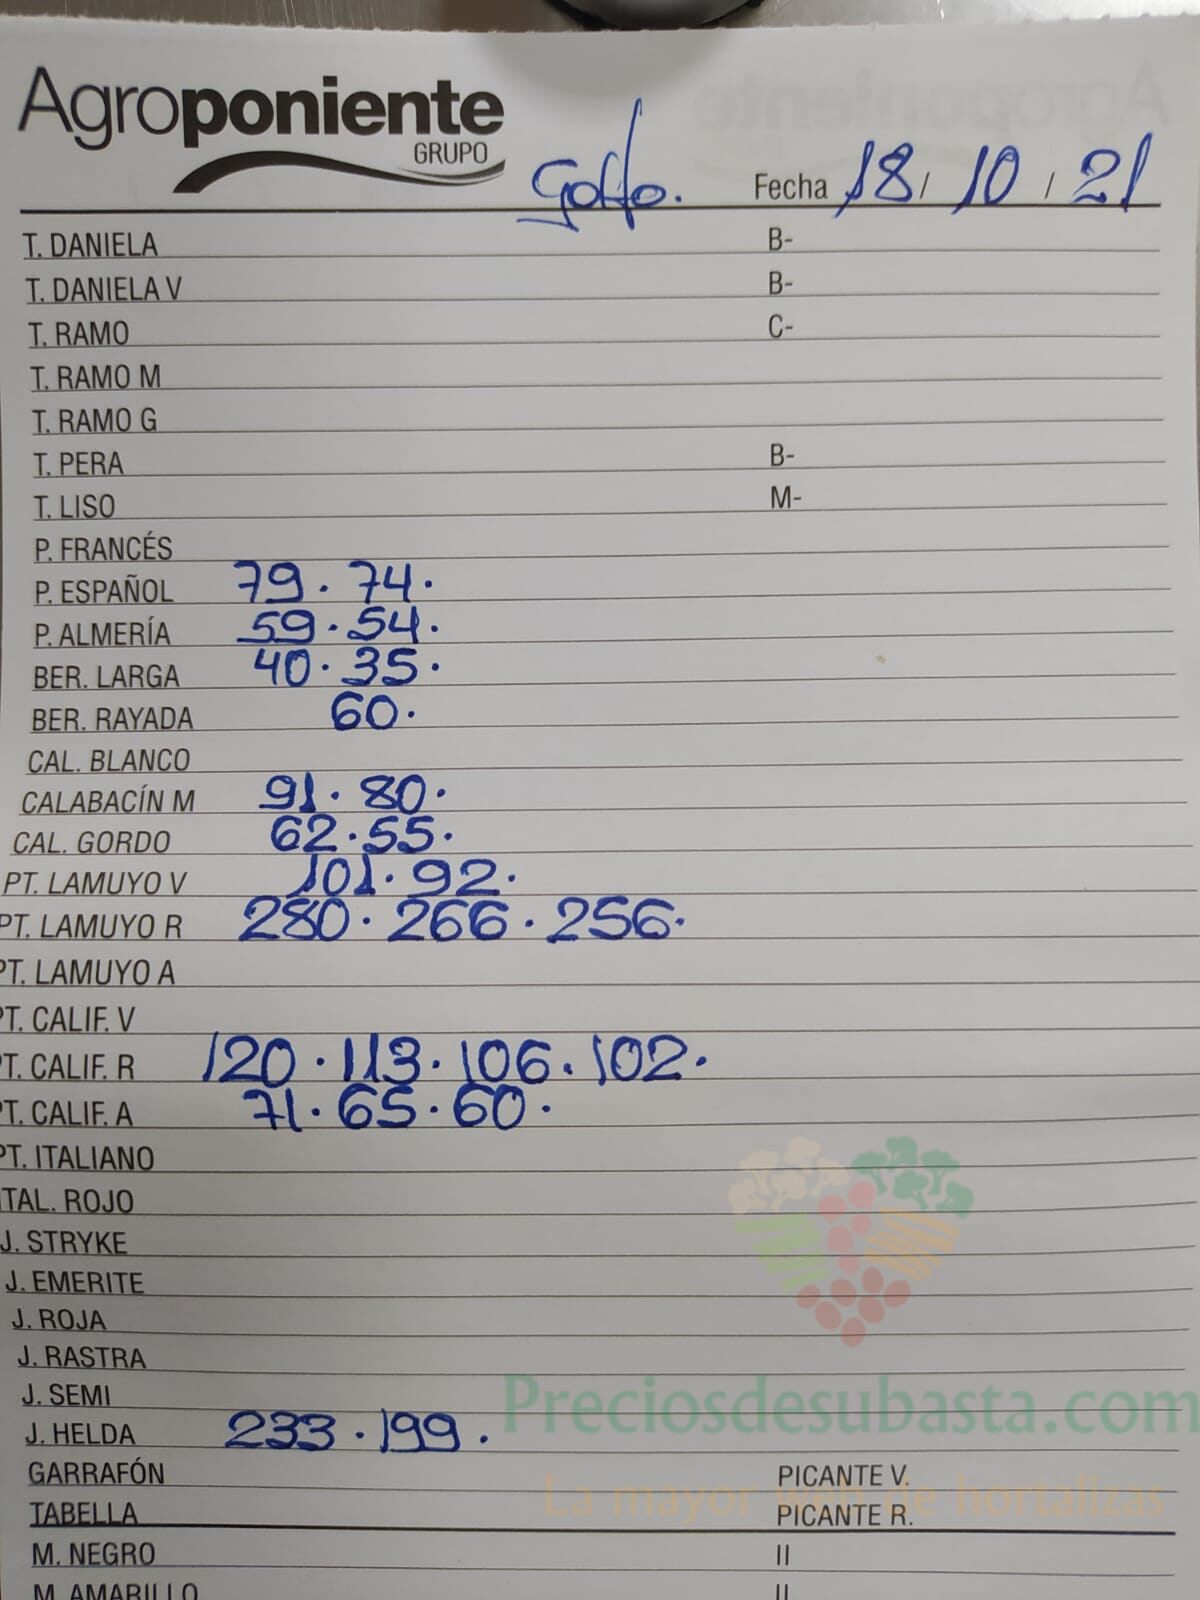 Agroponiente
GRUPO
Golfo. Fecha 18 / 10 / 21
T. DANIELA B-
T. DANIELA V B-
T. RAMO C-
T. RAMO M
T. RAMO G
T. PERA B-
T. LISO M-
P. FRANCÉS
P. ESPAÑOL 79 · 74 ·
P. ALMERÍA 59 · 54 ·
BER. LARGA 40 · 35 ·
BER. RAYADA 60 ·
CAL. BLANCO
CALABACÍN M 91 · 80 ·
CAL. GORDO 62 · 55 ·
PT. LAMUYO V 101 · 92 ·
PT. LAMUYO R 280 · 266 · 256 ·
PT. LAMUYO A
PT. CALIF. V
PT. CALIF. R 120 · 113 · 106 · 102 ·
PT. CALIF. A 71 · 65 · 60 ·
PT. ITALIANO
ITAL. ROJO
J. STRYKE
J. EMERITE
J. ROJA
J. RASTRA
J. SEMI
J. HELDA 233 · 199 ·
Preciosdesubasta.com
GARRAFÓN PICANTE V.
La mayor web de hortalizas
TABELLA PICANTE R.
M. NEGRO II
M. AMARILLO II